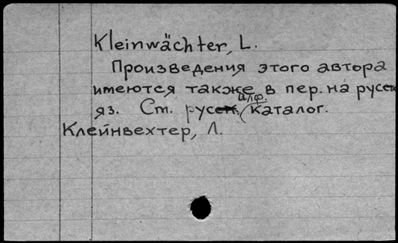 Kleinwächter, L.
Произведения этого автора
имеются также в пер. на русск
яз. См. алф. каталог.
Клейнвехтер, Л.